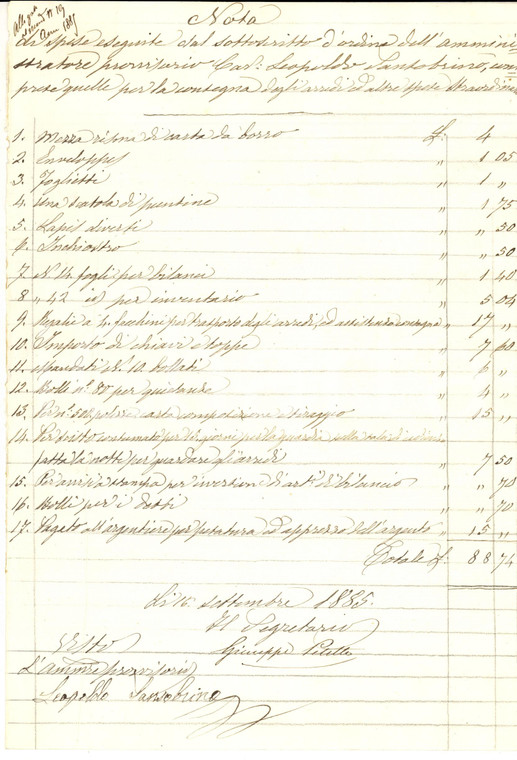 Nota
di spese eseguite dal sottoscritto d'ordine dell'ammini
stratore provvisorio Cav.e Leopoldo Sansobrino, com
prese quelle per la consegna degli arredi ed altre spese straordin
1. Mezza risma di carta da borro L. 4
2. Enveloppes " 1 05
3. Foglietti " 1 "
4. Una scatola di puntine " 1 75
5. Lapis diversi " " 50
6. Inchiostro " " 50
7. N. 14 fogli per bilanci " 1 40
8 " 42 id per inventario " 5 04
9. Regalie a 4 facchini per trasporto degli arredi, ed consegna " 17 "
10. Importo di chiavi e toppe " 7 60
11. Mandati N. 10 bollati " 6 "
12. Bolli n.° 80 per quietanze " 4 "
13. Per n.° polizze carta composizione e tiraggio " 15 "
14. Per consumato per giorni per la guardia
fatta la notte per guardare gli arredi " 7 50
15. Per stampa per inserzione di art. di bilancio " " 70
16. Bolli per i detti " " 70
17. Pagato all'argentiere per pesatura ed apprezzo dell'argento " 15 "
Totale L. 88 74
di 16 settembre 1885.
Il Segretario
Giuseppe
Visto
L'Amm.re provvisorio
Leopoldo Sansobrino